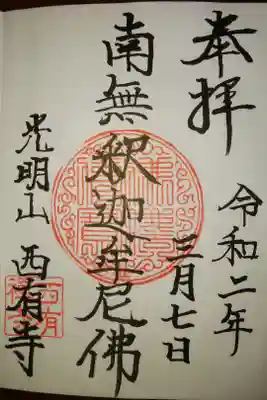 奉拝
令和二年
三月七日
南無釈迦牟尼佛
光明山 西有寺